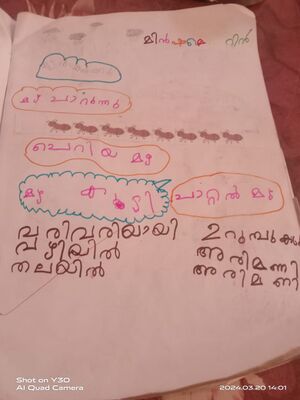 മഴ ചാറുന്നു
ചെറിയ മഴ
മഴ
ചാറ്റൽ മഴ
വരിവരിയായി ഉറുമ്പുകൾ
വഴിയിൽ അരിമണി
തലയിൽ അരിമണി
Shot on Y30
AI Quad Camera
2024.03.20 14:01